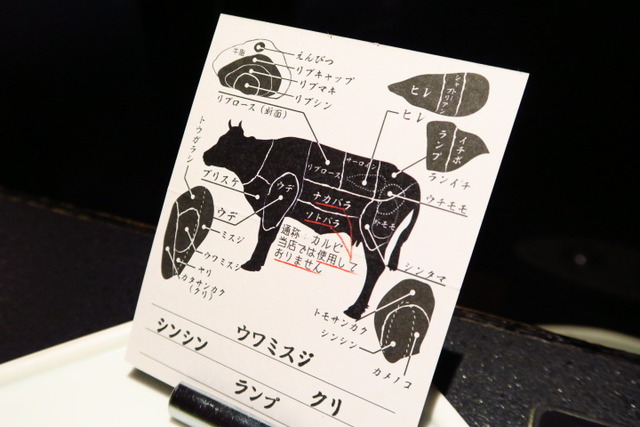 牛脂
えんぴつ
リブキャップ
リブマキ
リブシン
リブロース(断面)
ヒレ
シャトーブリアン
ヒレ
ランプ
イチボ
ランイチ
サーロイン
リブロース
トウガラシ
ブリスケ
ウデ
ナカバラ
ソトバラ
ウチモモ
トモモ
ウデ
ミスジ
ウワミスジ
ヤリ
カタサンカク
(クリ)
通称:カルビ
当店では使用して
おりません
シンタマ
トモサンカク
シンシン
カメノコ
シンシン
ウワミスジ
ランプ
クリ